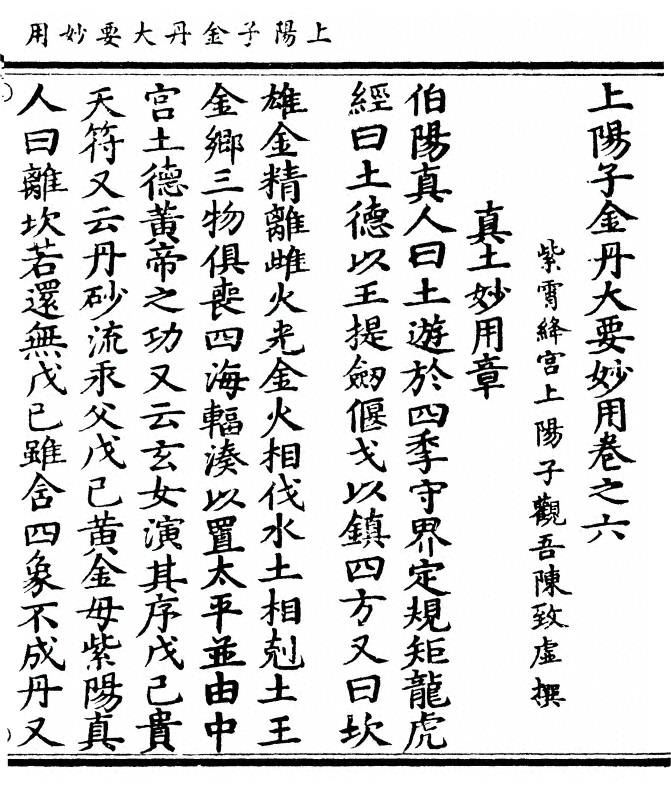 上陽子金丹大要妙用
上陽子金丹大要妙用卷之六
紫霄絳宮上陽子觀吾陳致虛撰
真土妙用章
伯陽真人曰土遊於四季守界定規矩龍虎
經曰土德以王提劒偃戈以鎮四方又曰坎
雄金精離雌火光金火相伐水土相剋土王
金鄉三物俱喪四海輻湊以置太平並由中
宮土德黃帝之功又云玄女演其序戊己貴
天符又云丹砂流汞父戊己黃金母紫陽真
人曰離坎若還無戊己雖含四象不成丹又